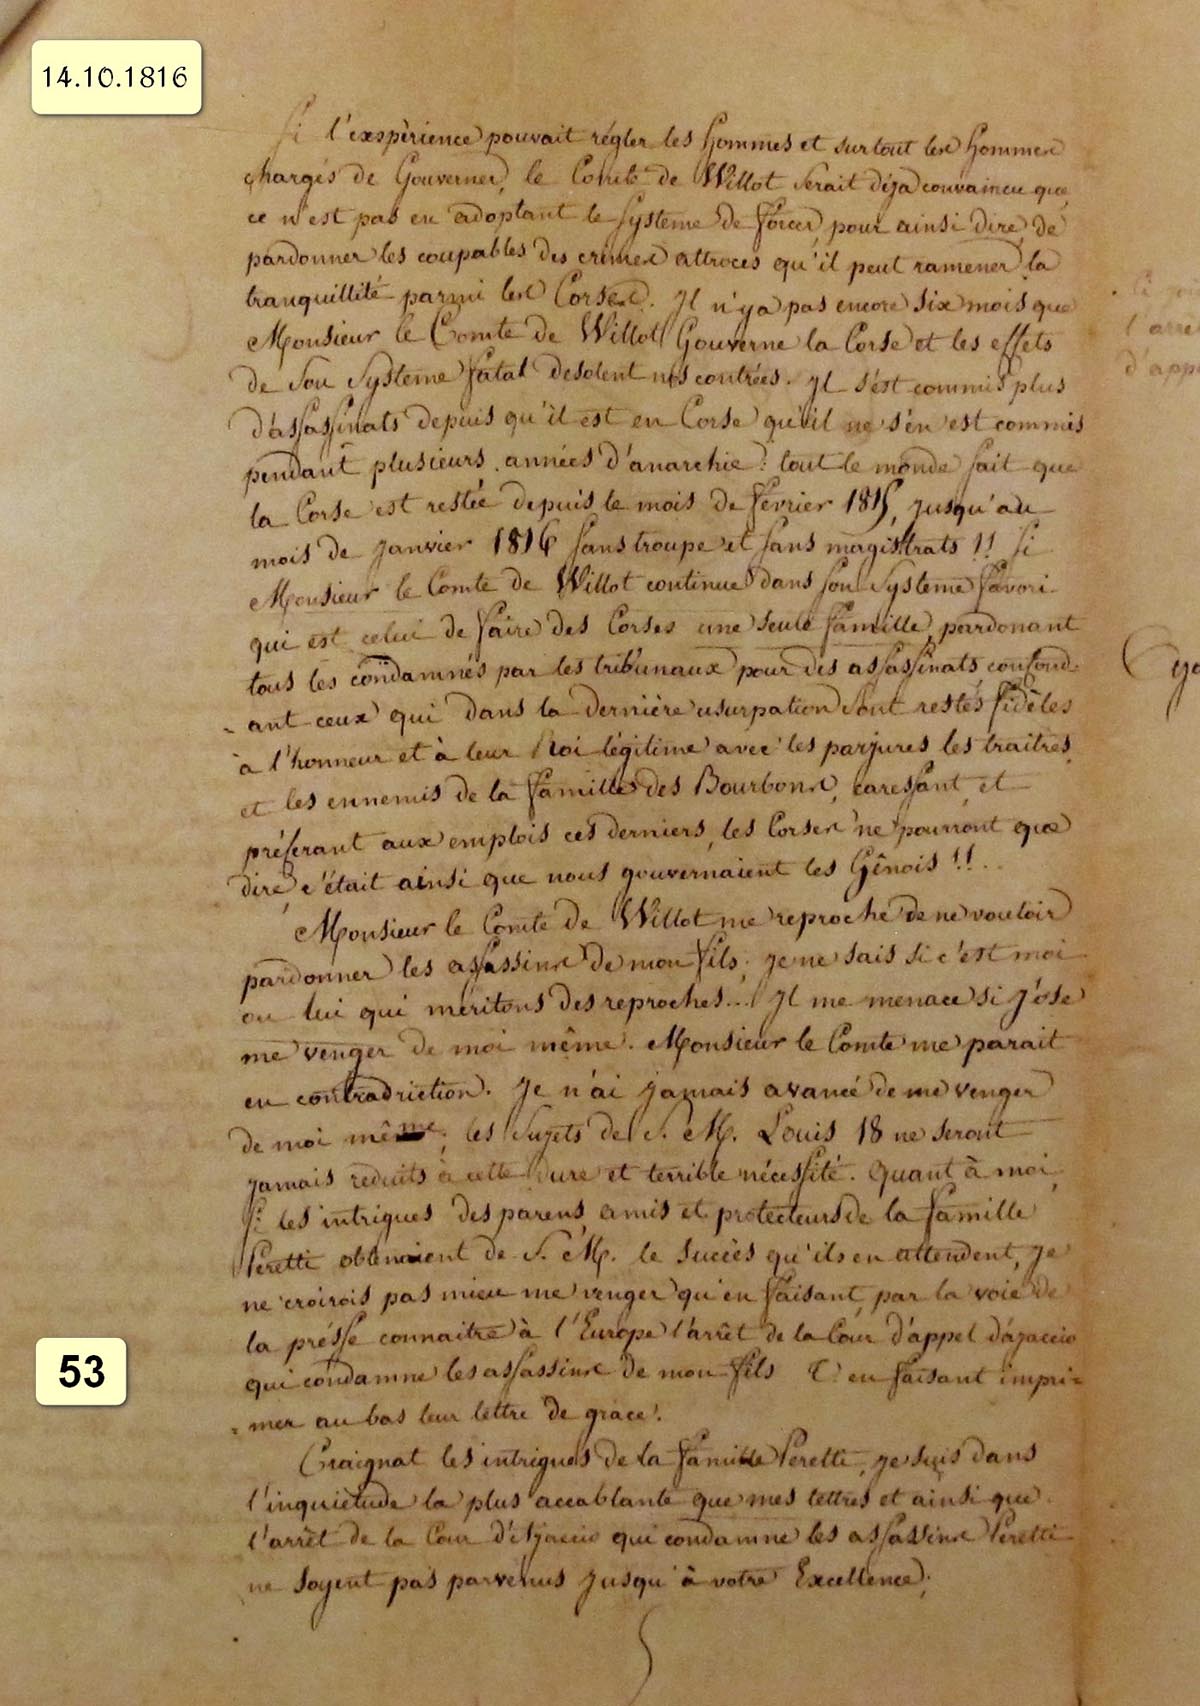 14.10.1816
Si l'exspèrience pouvait régler les hommes et surtout les hommes
chargés de Gouverner, le Comte de Willot serait déja convaincu que
ce n'est pas en adoptant le systeme de forcer, pour ainsi dire, de
pardonner les coupables des crimes attroces qu'il peut ramener la
tranquillité parmi les Corses. Jl n'ya pas encore six mois que
Monsieur le Comte de Willot Gouverne la Corse et les effets
de son systeme fatal desolent nos contrées. Jl s'ést commis plus
d'assassinats depuis qu'il est en Corse qu'il ne s'én est commis
pendant plusieurs années d'anarchie: tout le monde sait que
la Corse est restée depuis le mois de fevrier 1815, jusqu'au
mois de Janvier 1816 sans troupe et sans magistrats !! Si
Monsieur le Comte de Willot continue dans son systeme favori
qui est celui de faire des Corses une seule famille, pardonant
tous les condamnés par les tribunaux pour des assassinats confond=
= ant ceux qui dans la dernière usurpation sont restés fidèles
à l'honneur et à leur Roi légitime avec les parjures les traitres,
et les ennemis de la famille des Bourbons, caressant, et
préferant aux emplois ces derniers, les Corses ne pourront que
dire, c'était ainsi que nous gouvernaient les Gênois !!...
Monsieur le Comte de Willot me reproche de ne vouloir
pardonner les assassins de mon fils; je ne sais si c'est moi
ou lui qui meritons des reproches... Jl me menace si j'ose
me venger de moi même. Monsieur le Comte me parait
en contradriction. Je n'ai jamais avancé de me venger
de moi même; les sujets de S. M. Louis 18 ne seront
jamais reduits à cette dure et terrible nécessité. Quant à moi,
si les intrigues des parens, amis et protecteurs de la famille
Peretti obtenaient de S. M. le succès qu'ils en attendent, je
ne croirois pas mieu me venger qu'en faisant, par la voie de
la présse connaitre à l'Europe l'arrêt de la Cour d'appel d'ajaccio
qui condamne les assassins de mon fils & en faisant impri=
= mer au bas leur lettre de grace!.
Craignat les intrigues de la famille Peretti, je suis dans
l'inquietude la plus accablante que mes lettres et ainsi que
l'arrêt de la Cour d'Ajaccio qui condamne les assassins Peretti
ne soyent pas parvenus jusqu'à votre Excellence;
53